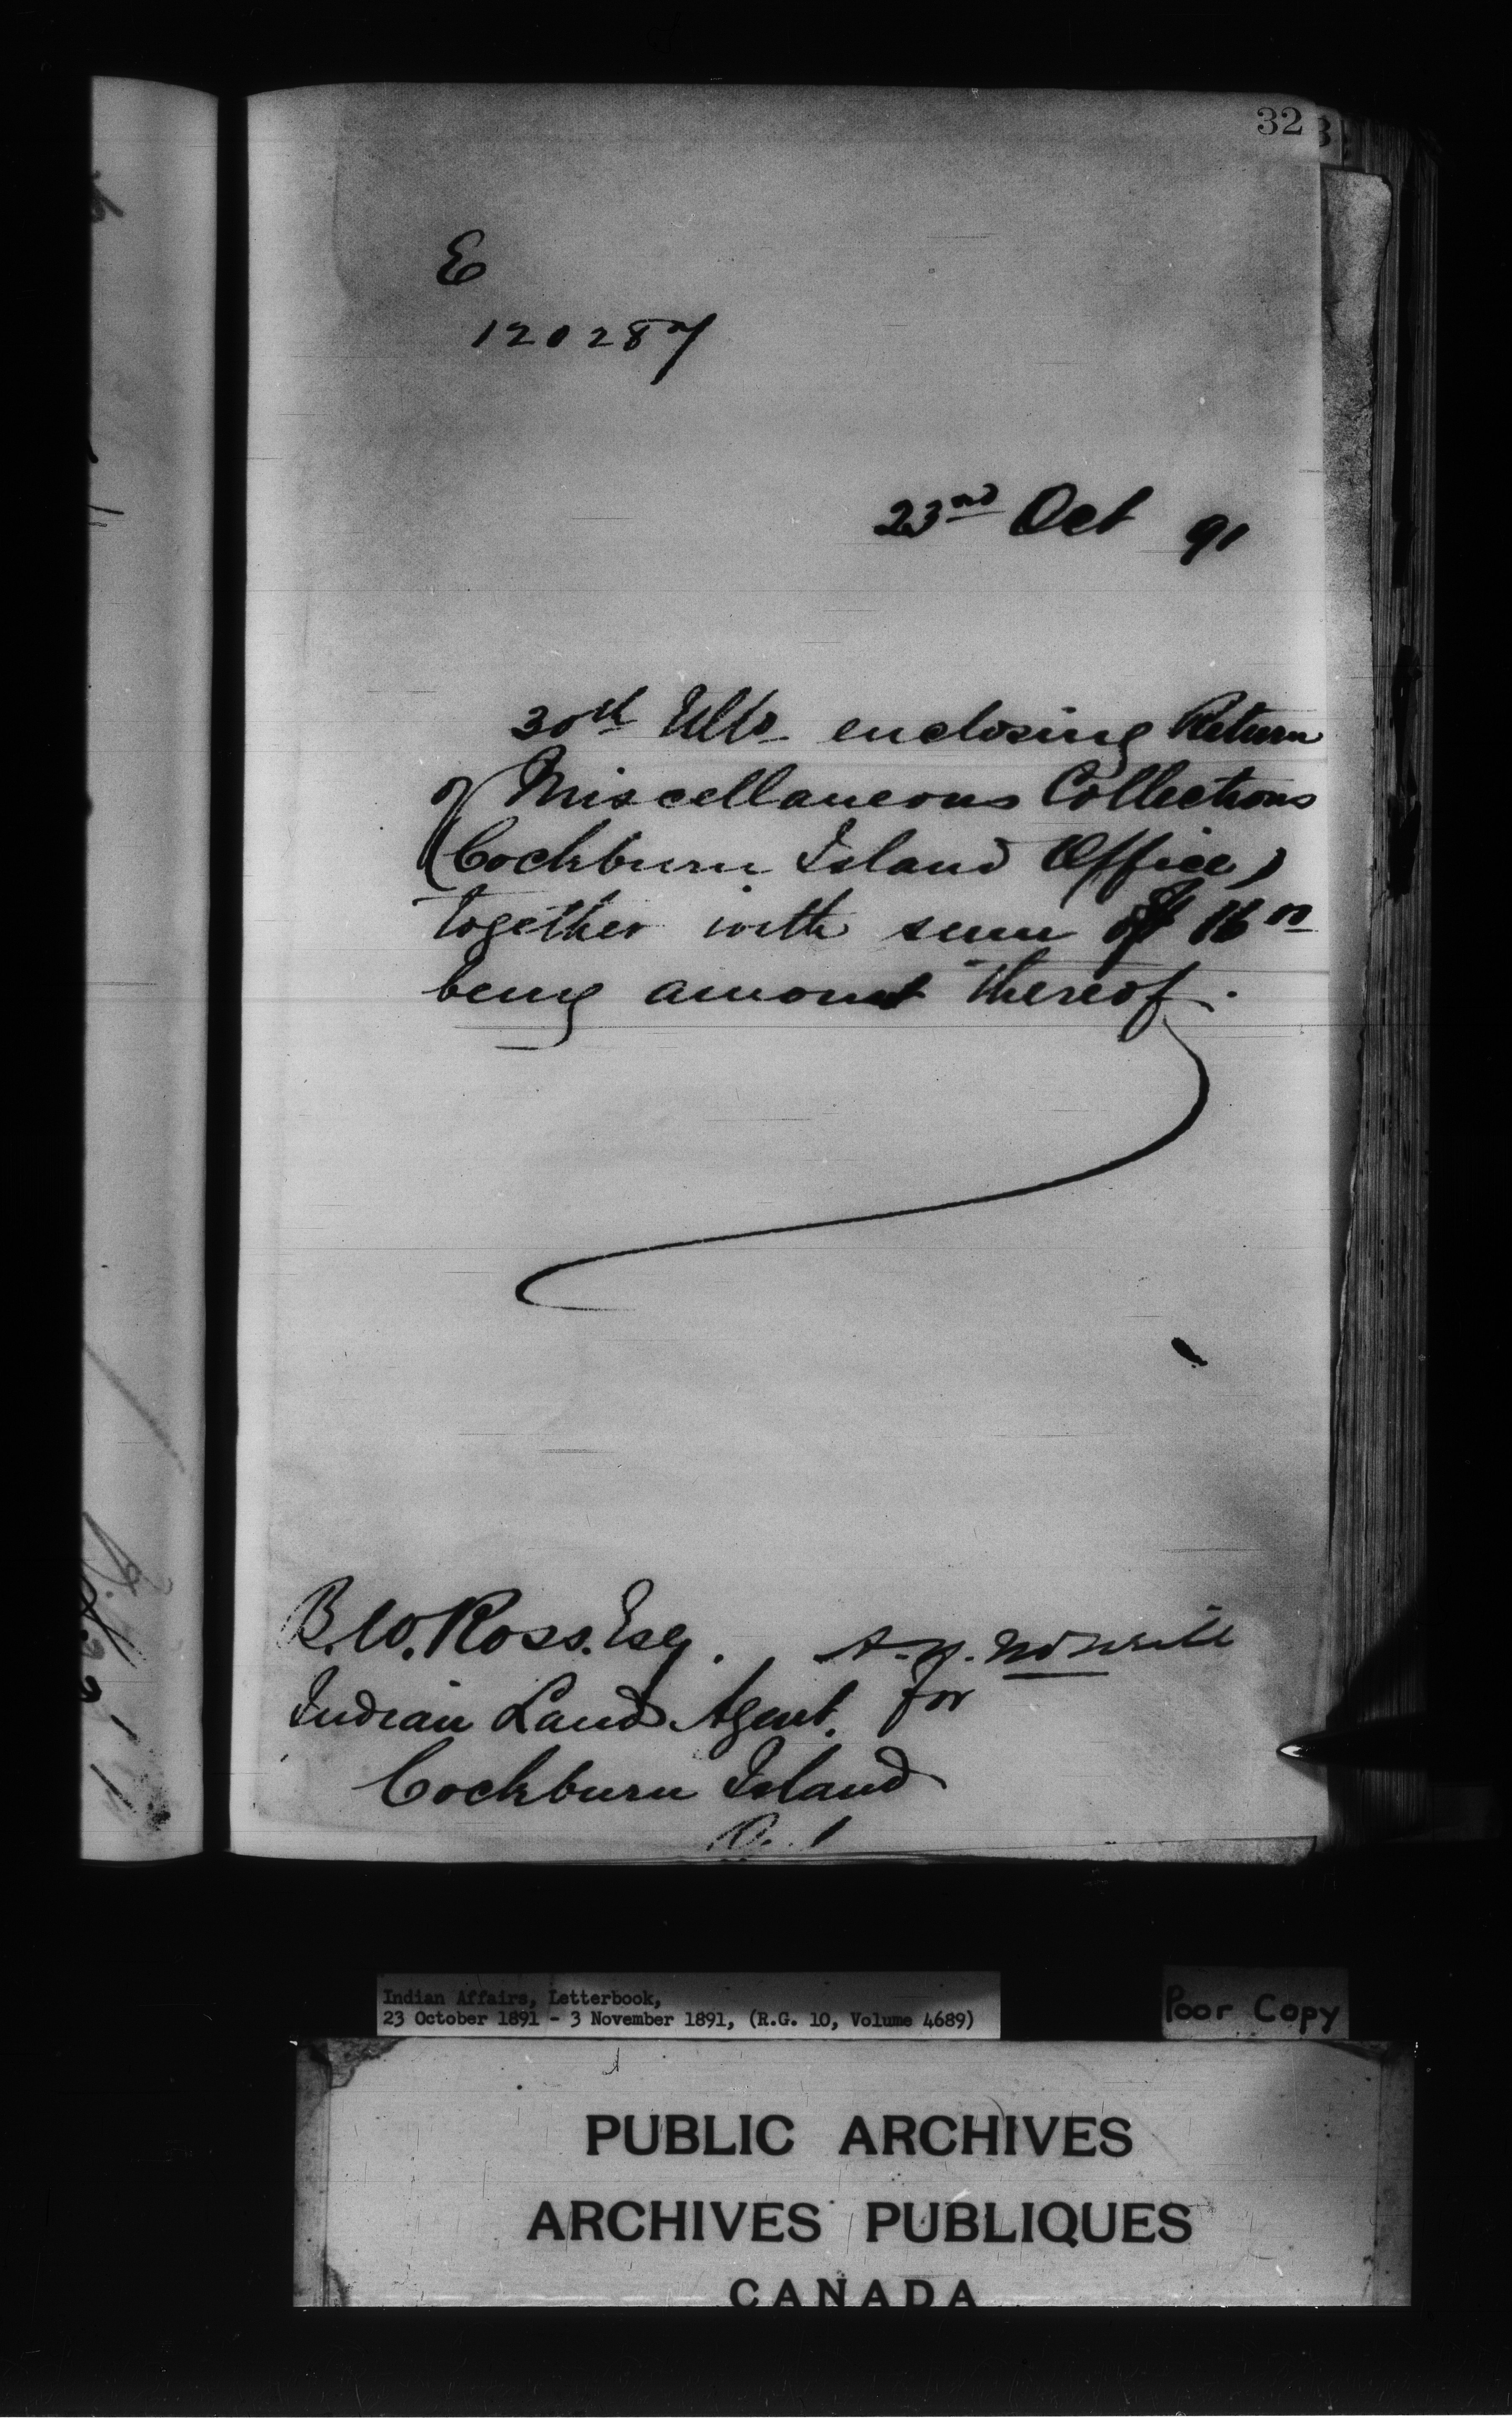 32
E
120287
23nd Oct 91
30th Ulto enclosing Return
of Miscellaneous Collections
(Cockburn Island Office)
together with sum of $16 00
being amount thereof.
B.W. Ross. Esq.
for
Indian Land Agent.
Cockburn Island
Indian Affairs, Letterbook,
23 October 1891 - 3 November 1891, (R.G. 10, Volume 4689)
Poor Copy
PUBLIC ARCHIVES
ARCHIVES PUBLIQUES
CANADA